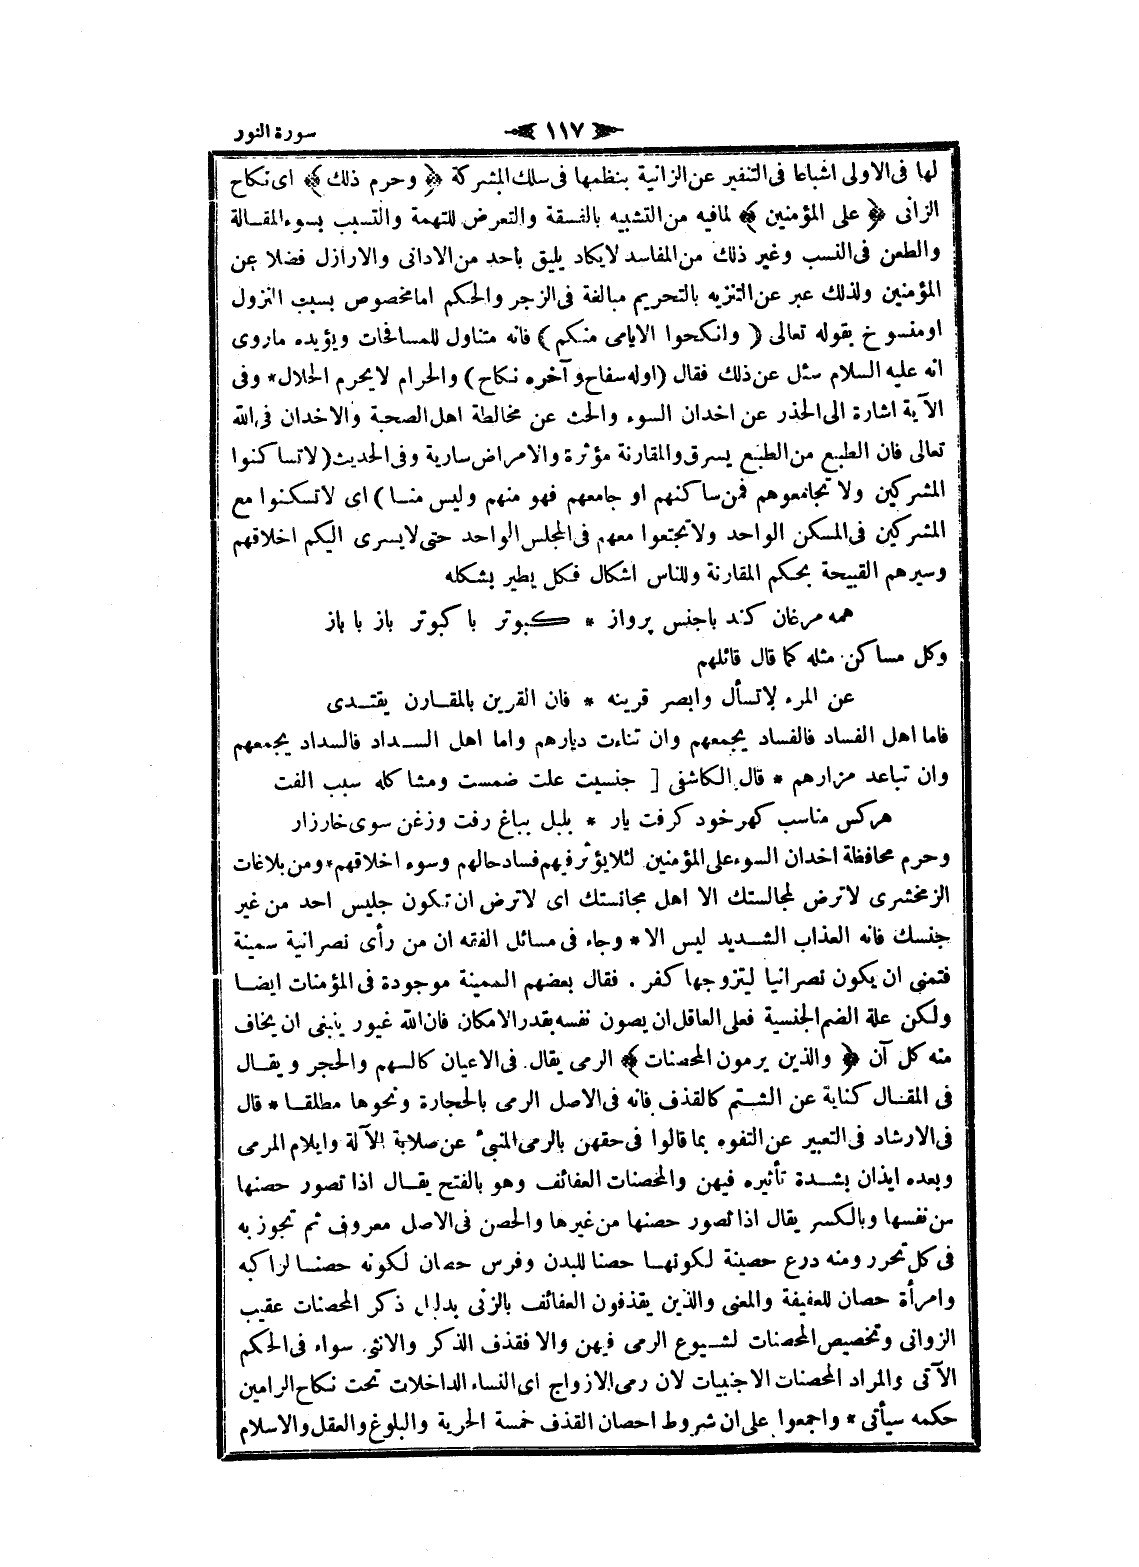 سورة النور ١١٧
لها فى الاولى اشباعا فى التنفير عن الزانية بنظمها فى سلك المشركة ﴿ وحرم ذلك ﴾ اى نكاح
الزانى ﴿ على المؤمنين ﴾ لمافيه من التشبيه بالفسقة والتعرض للتهمة والتسبب بسوء المقالة
والطعن فى النسب وغير ذلك من المفاسد لايكاد يليق باحد من الادانى والارازل فضلا عن
المؤمنين ولذلك عبر عن التنزيه بالتحريم مبالغة فى الزجر والحكم امامخصوص بسبب النزول
اومنسوخ بقوله تعالى ( وانكحوا الايامى منكم ) فانه متناول للمسافحات ويؤيده ماروى
انه عليه السلام سئل عن ذلك فقال (اوله سفاح وآخره نكاح) والحرام لايحرم الحلال * وفى
الآية اشارة الى الحذر عن اخدان السوء والحث عن مخالطة اهل الصحبة والاخدان فى الله
تعالى فان الطبع من الطبع يسرق والمقارنة مؤثرة والامراض سارية وفى الحديث (لاتساكنوا
المشركين ولا تجامعوهم فمن ساكنهم او جامعهم فهو منهم وليس منا) اى لاتسكنوا مع
المشركين فى المسكن الواحد ولاتجتمعوا معهم فى المجلس الواحد حتى لايسرى اليكم اخلاقهم
وسيرهم القبيحة بحكم المقارنة وللناس اشكال فكل يطير بشكله
همه مرغان كند باجنس پرواز * كبوتر با كبوتر باز با باز
وكل مساكن مثله كما قال قائلهم
عن المرء لاتسأل وابصر قرينه * فان القرين بالمقارن يقتدى
فاما اهل الفساد فالفساد يجمعهم وان تناءت ديارهم واما اهل السداد فالسداد يجمعهم
وان تباعد مزارهم * قال الكاشفى [ جنسيت علت ضمست ومشاكله سبب الفت
هركس مناسب كهر خود كرفت يار * بلبل بباغ رفت وزغن سوى خارزار
وحرم محافظة اخدان السوء على المؤمنين لئلايؤثر فيهم فساد حالهم وسوء اخلاقهم * ومن بلاغات
الزمخشرى لاترض لمجالستك الا اهل مجانستك اى لاترض ان تكون جليس احد من غير
جنسك فانه العذاب الشديد ليس الا * وجاء فى مسائل الفقه ان من رأى نصرانية سمينة
فتمنى ان يكون نصرانيا ليتزوجها كفر . فقال بعضهم السمينة موجودة فى المؤمنات ايضا
ولكن علة الضم الجنسية فعلى العاقل ان يصون نفسه بقدر الامكان فان الله غيور ينبغى ان يخاف
منه كل آن ﴿ والذين يرمون المحصنات ﴾ الرمى يقال فى الاعيان كالسهم والحجر ويقال
فى المقال كناية عن الشتم كالقذف فانه فى الاصل الرمى بالحجارة ونحوها مطلقا * قال
فى الارشاد فى التعبير عن التفوه بما قالوا فى حقهن بالرمى المنبئ عن صلابة الآلة وايلام المرمى
وبعده ايذان بشدة تأثيره فيهن والمحصنات العفائف وهو بالفتح يقال اذا تصور حصنها
من نفسها وبالكسر يقال اذا تصور حصنها من غيرها والحصن فى الاصل معروف ثم تجوز به
فى كل تحرر ومنه درع حصينة لكونها حصنا للبدن وفرس حصان لكونه حصنا لراكبه
وامرأة حصان للعفيفة والمعنى والذين يقذفون العفائف بالزنى بدليل ذكر المحصنات عقيب
الزوانى وتخصيص المحصنات لشيوع الرمى فيهن والا فقذف الذكر والانثى سواء فى الحكم
الآتى والمراد المحصنات الاجنبيات لان رمى الازواج اى النساء الداخلات تحت نكاح الرامين
حكمه سيأتى * واجمعوا على ان شروط احصان القذف خمسة الحرية والبلوغ والعقل والاسلام